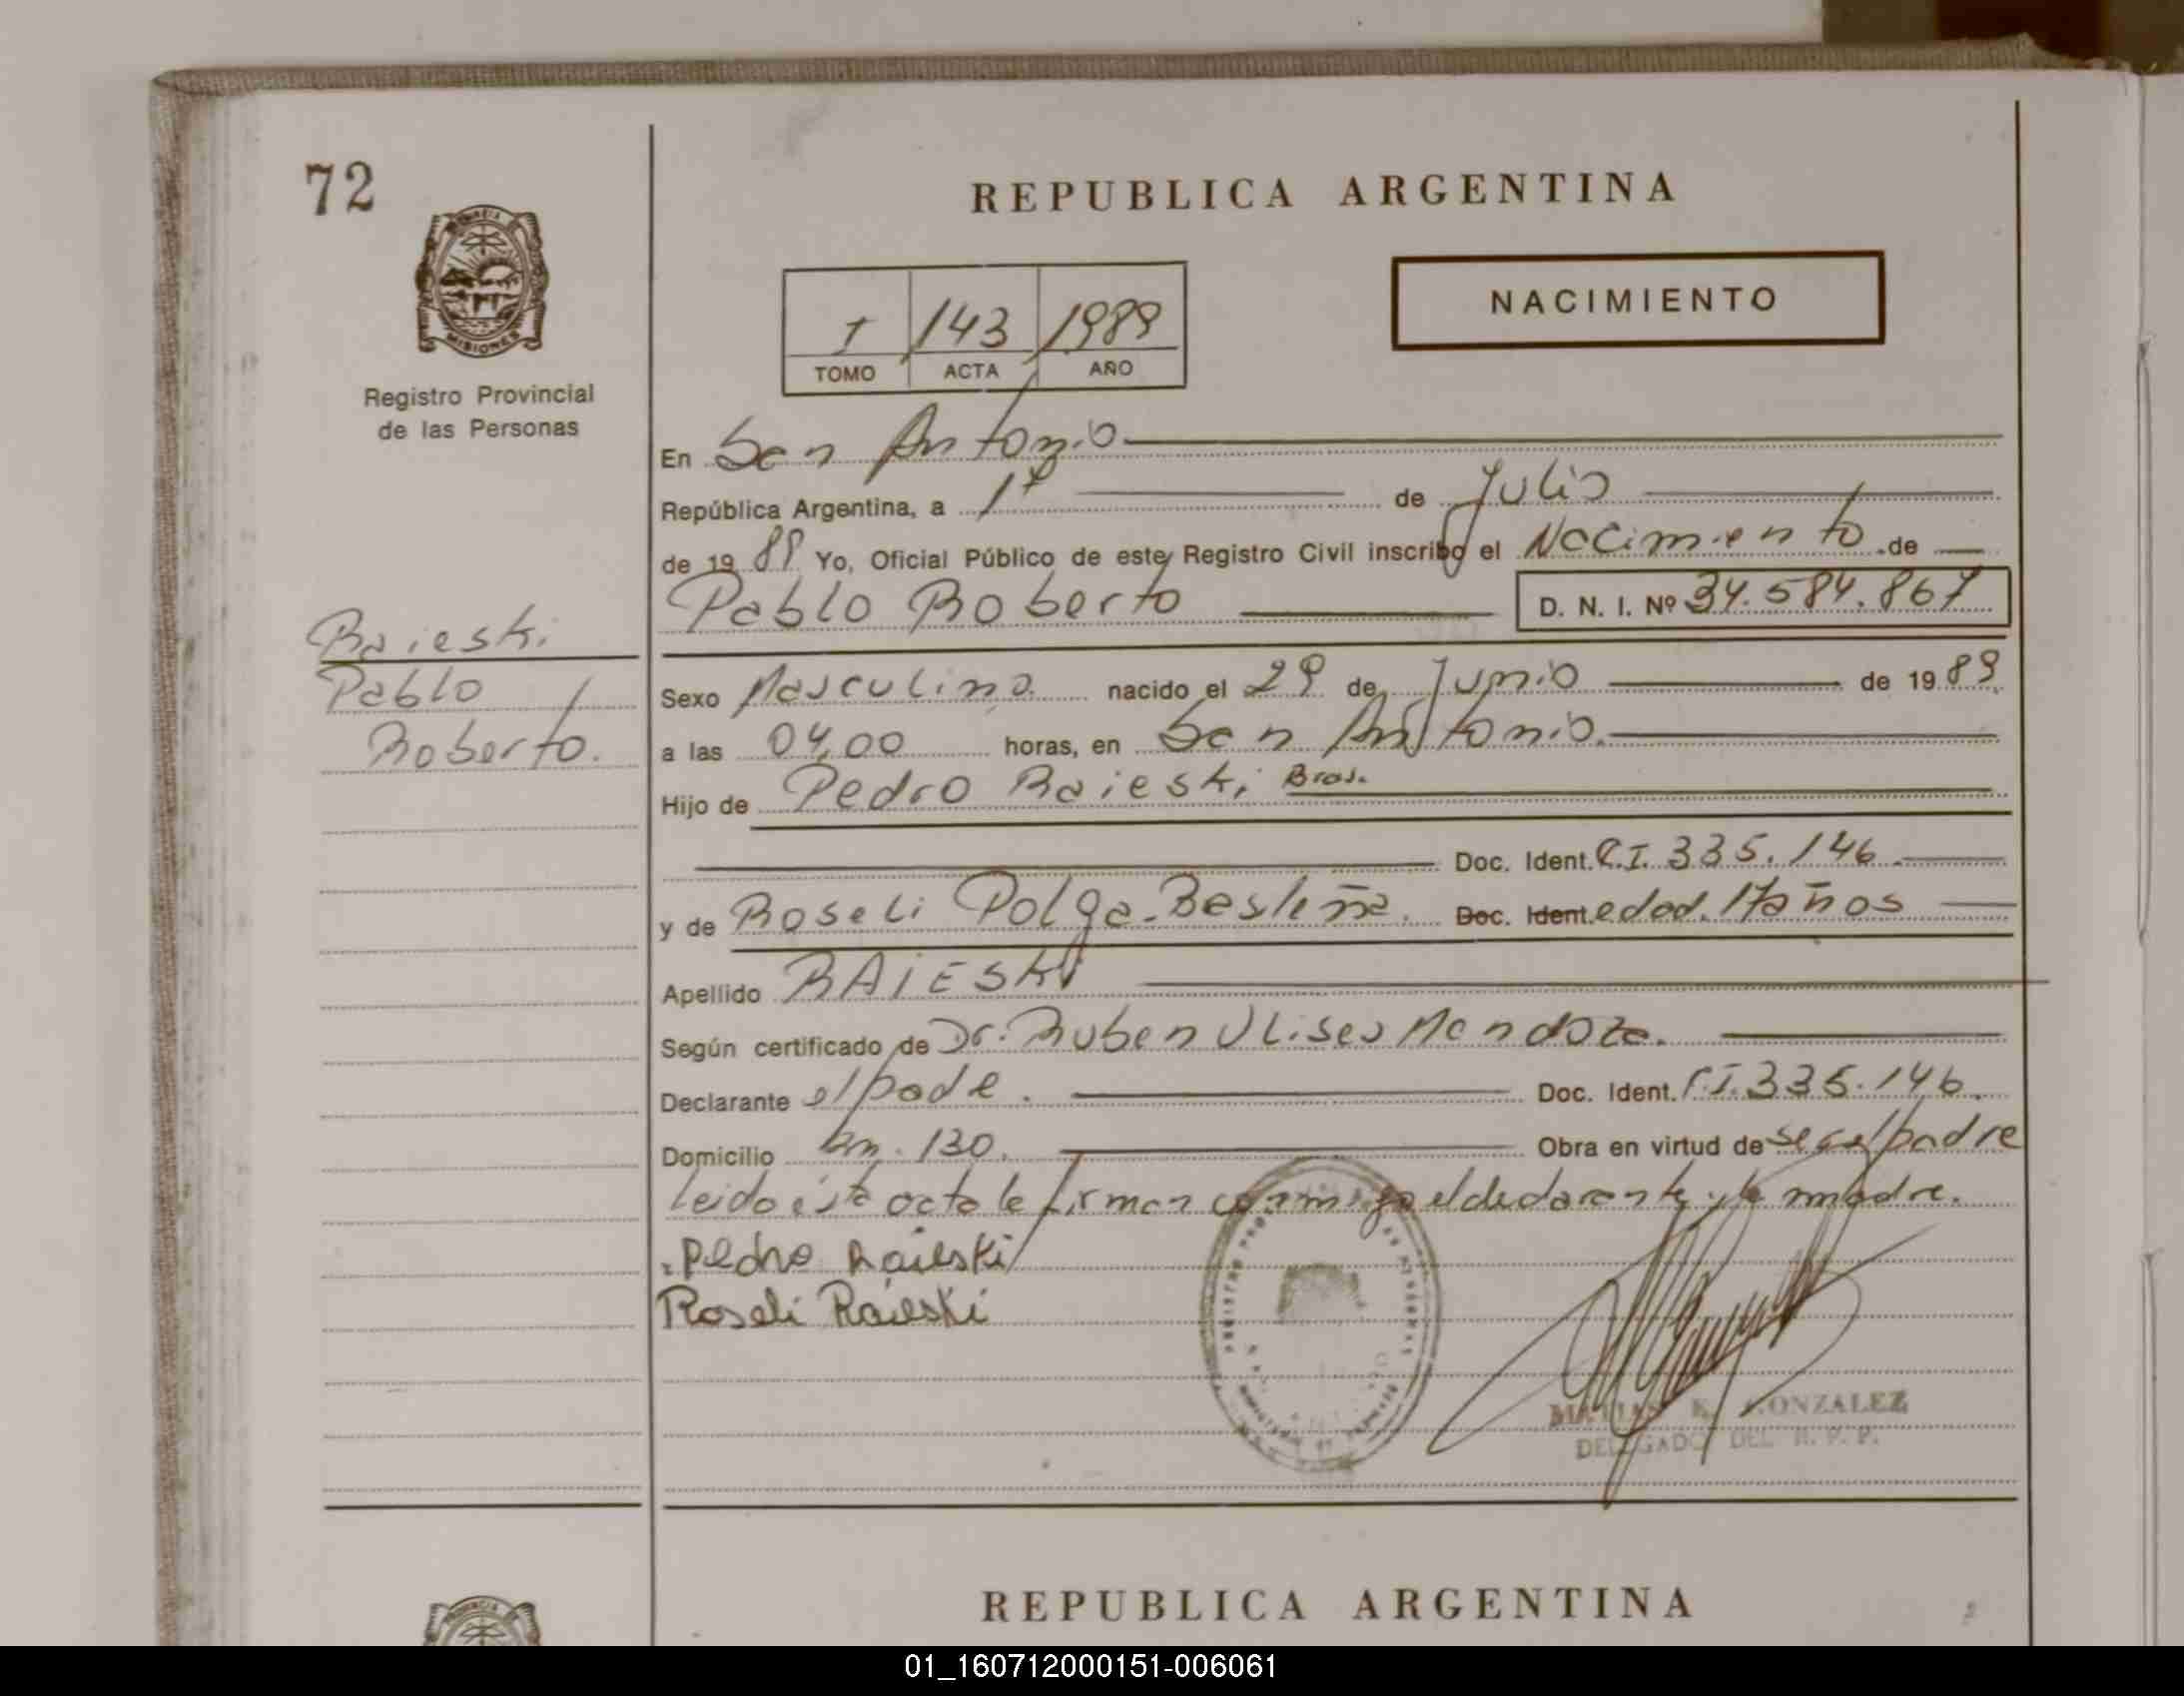 72
REPUBLICA ARGENTINA
MISIONES
Registro Provincial
de las Personas
I 143 1989
TOMO ACTA AÑO
NACIMIENTO
En San Antonio
República Argentina, a 17 de Julio
de 1989 Yo, Oficial Público de este Registro Civil inscribo el Nacimiento de
Pablo Roberto D. N. I. Nº 34.584.867
Raieski
Pablo
Roberto.
Sexo Masculino nacido el 29 de Junio de 1989
a las 04,00 horas, en San Antonio.
Hijo de Pedro Raieski Bras.
Doc. Ident. C.I. 335.146
y de Roseli Polga-Brasileña. Doc. Ident. edad. 17 años
Apellido RAIESKI
Según certificado de Dr. Ruben Ulises Mendoza.
Declarante el padre. Doc. Ident. C.I. 335.146.
Domicilio km. 130. Obra en virtud de ser el padre
leido ésta acta la firman conmigo el declarante y la madre.
Pedro Raieski
Roseli Raieski
MATIAS E. GONZALEZ
DELEGADO DEL R. P. P.
REPUBLICA ARGENTINA
PROVINCIA
01_160712000151-006061